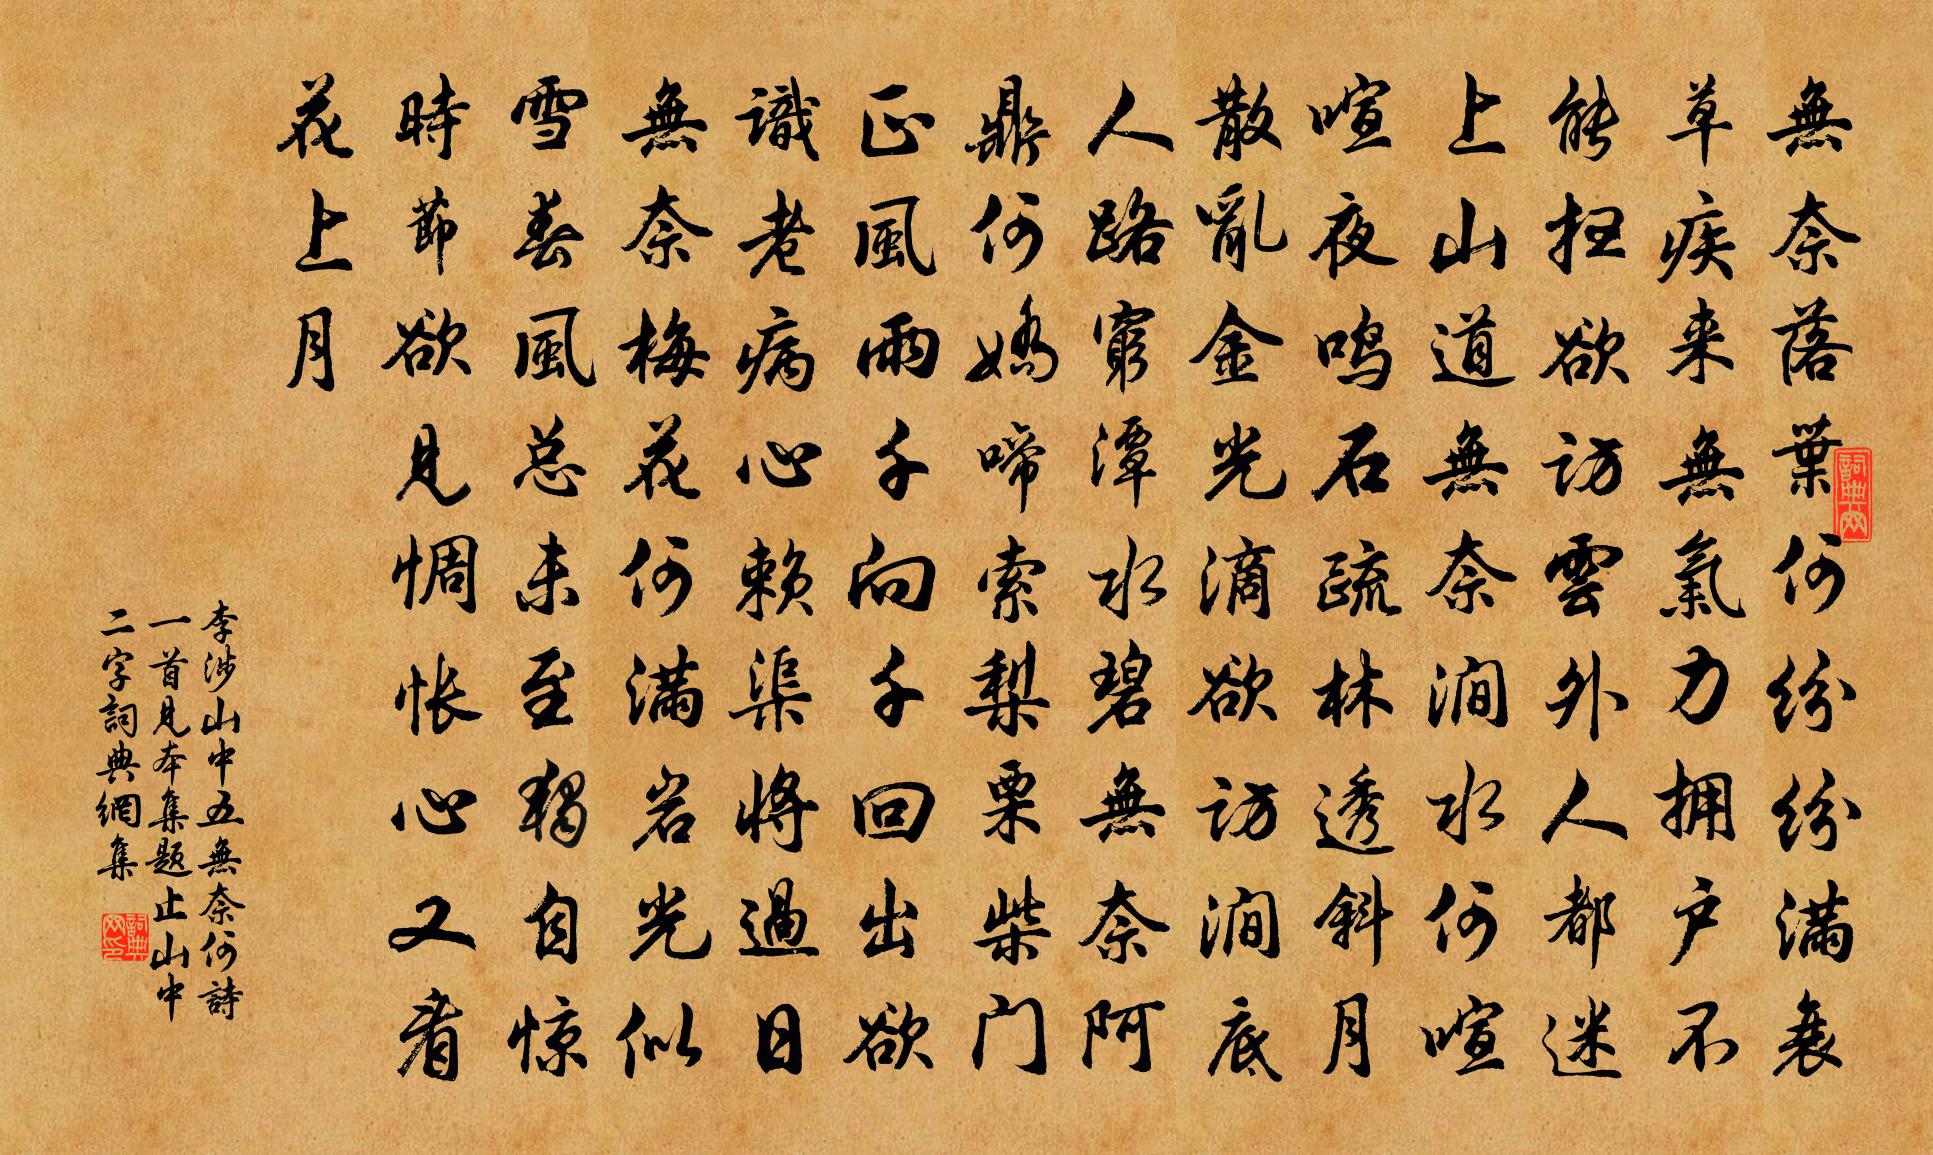 無奈落葉何紛紛滿衰
草疾来無氣力拥户不
能扫欲访雲外人都迷
上山道無奈涧水何喧
喧夜鸣石疏林透斜月
散亂金光滴欲访涧底
人路窮潭水碧無奈阿
鼎何嬌啼索梨栗柴门
正風雨千向千回出欲
識老病心赖渠将過日
無奈梅花何满岩光似
雪春風总未至獨自惊
時節欲見惆怅心又看
花上月
李涉山中五無奈何詩
一首見本集题止山中
二字詞典網集
詞典网
詞典网印